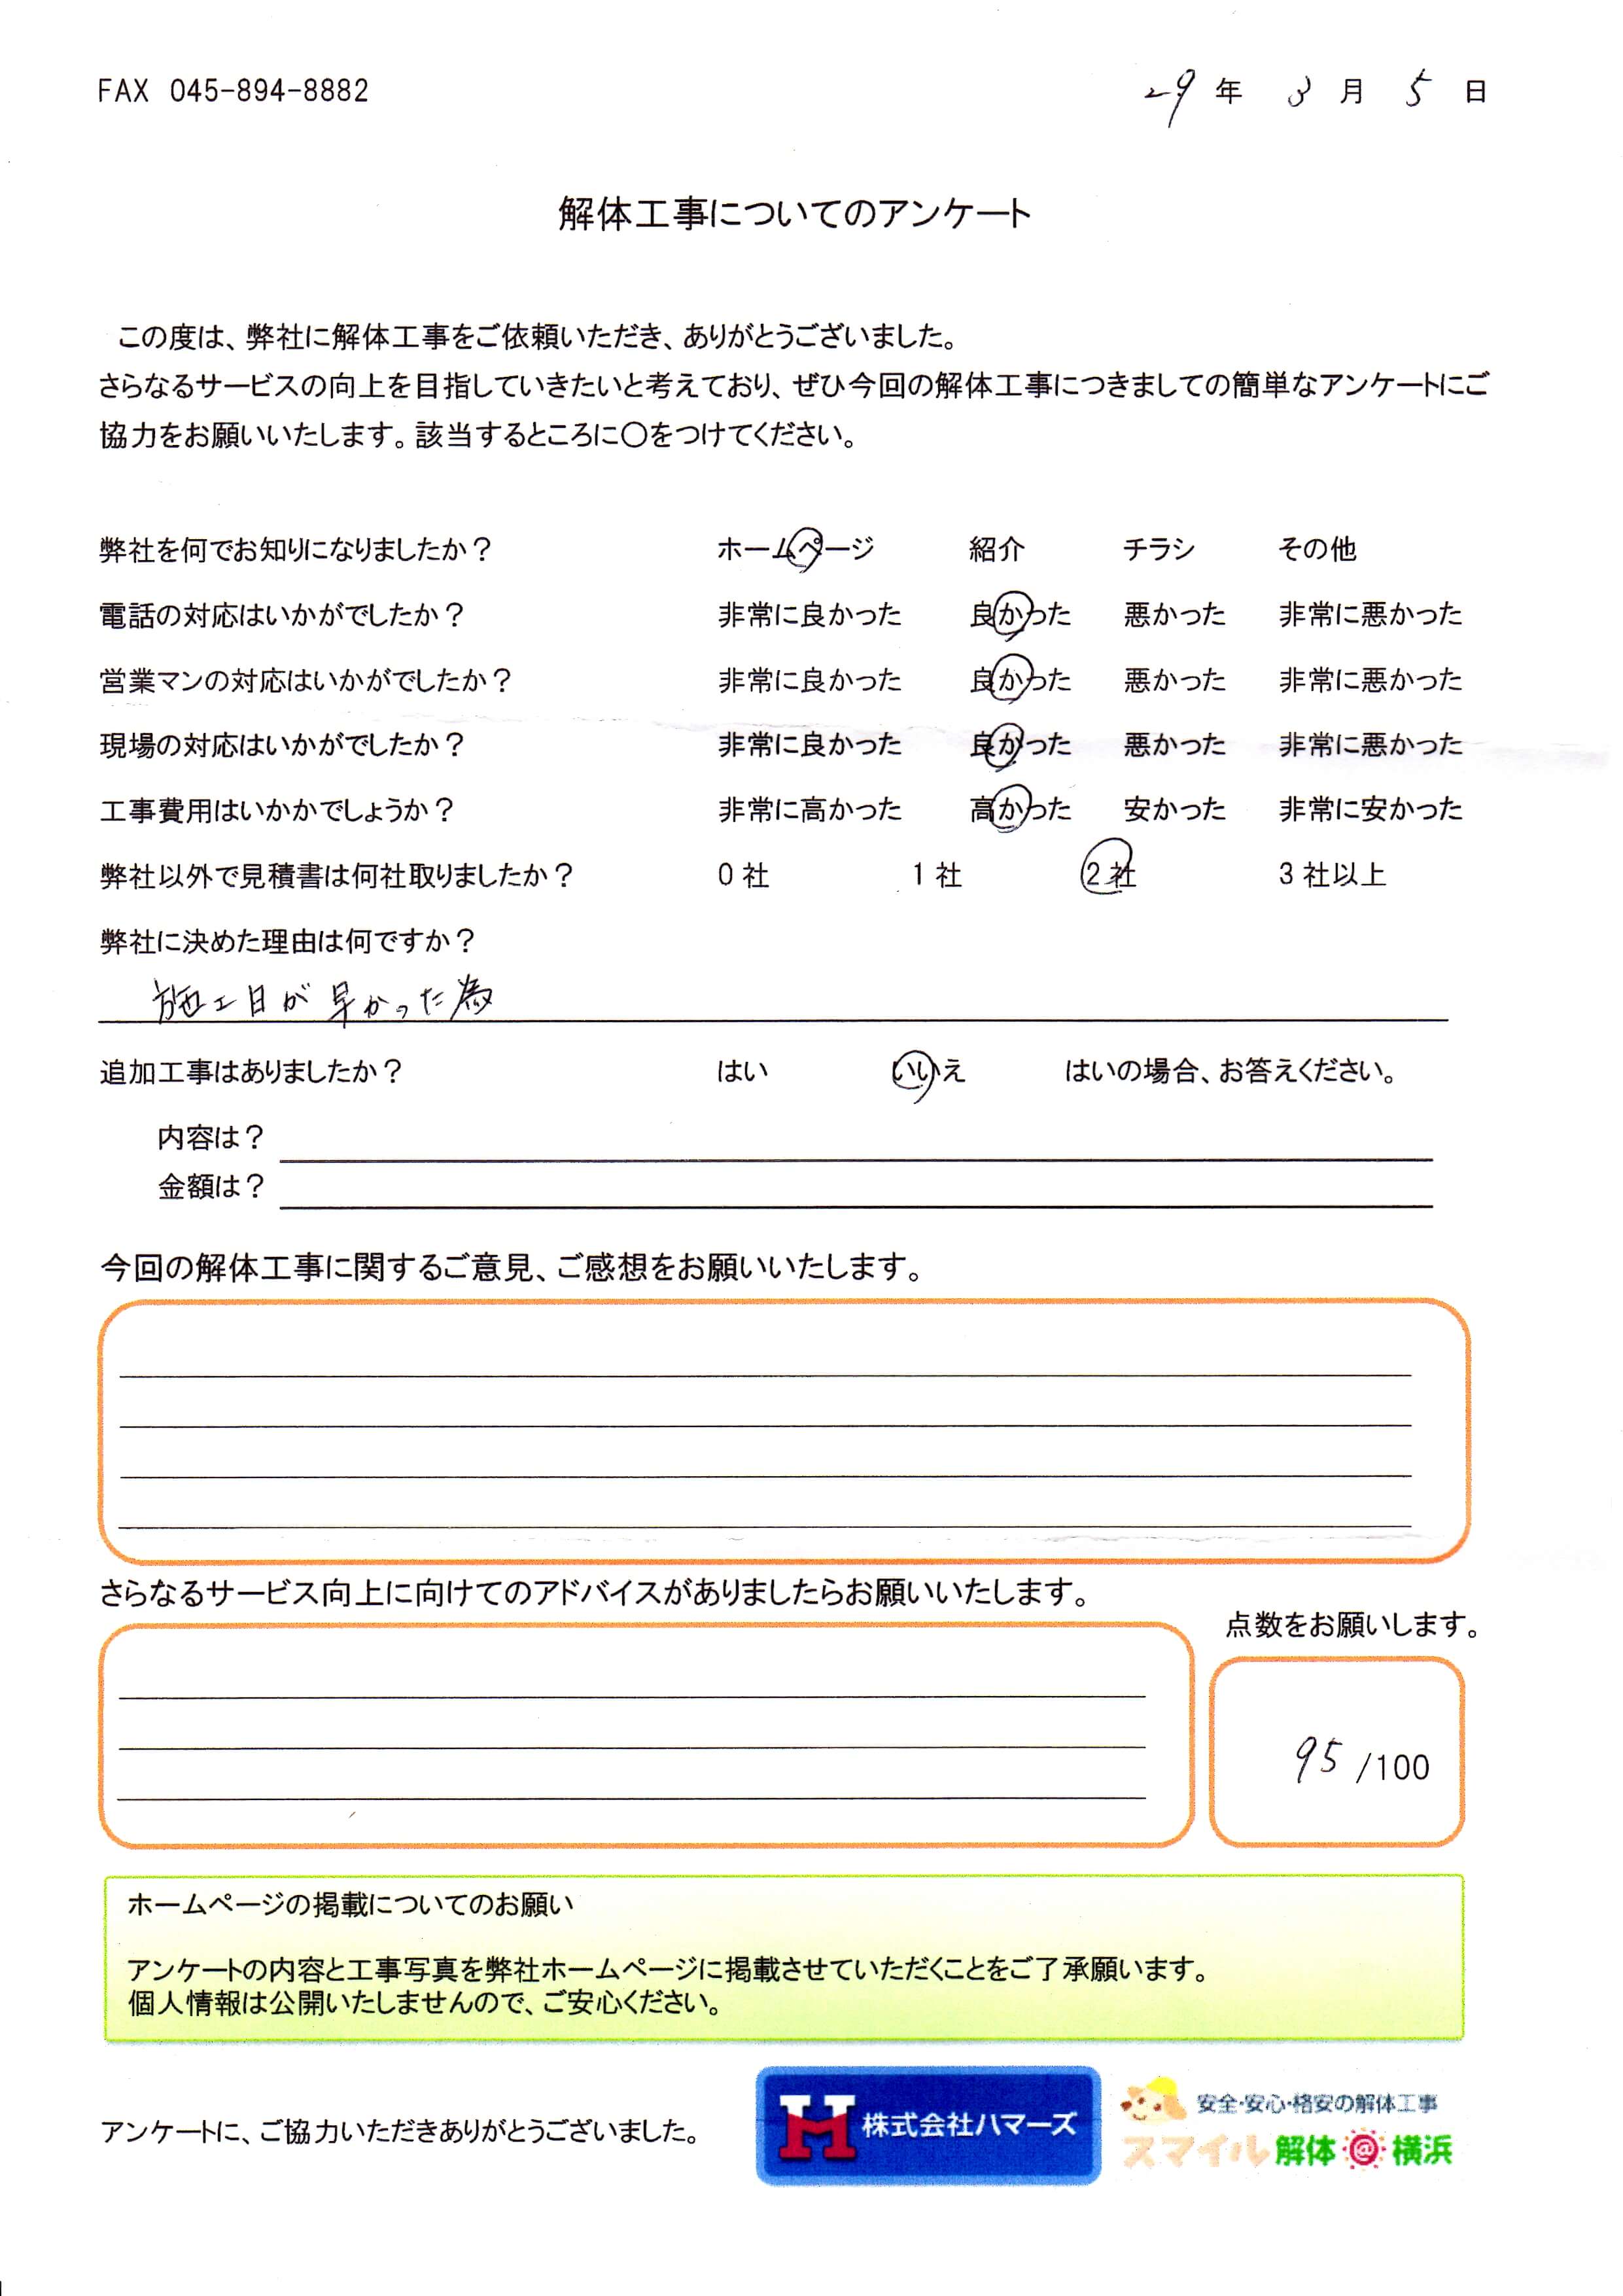 FAX 045-894-8882
29年 3月 5日
解体工事についてのアンケート
この度は、弊社に解体工事をご依頼いただき、ありがとうございました。
さらなるサービスの向上を目指していきたいと考えており、ぜひ今回の解体工事につきましての簡単なアンケートにご
協力をお願いいたします。該当するところに○をつけてください。
弊社を何でお知りになりましたか? ホームページ 紹介 チラシ その他
電話の対応はいかがでしたか? 非常に良かった 良かった 悪かった 非常に悪かった
営業マンの対応はいかがでしたか? 非常に良かった 良かった 悪かった 非常に悪かった
現場の対応はいかがでしたか? 非常に良かった 良かった 悪かった 非常に悪かった
工事費用はいかかでしょうか? 非常に高かった 高かった 安かった 非常に安かった
弊社以外で見積書は何社取りましたか? 0社 1社 2社 3社以上
弊社に決めた理由は何ですか?
施工日が早かった為
追加工事はありましたか? はい いいえ はいの場合、お答えください。
内容は?
金額は?
今回の解体工事に関するご意見、ご感想をお願いいたします。
さらなるサービス向上に向けてのアドバイスがありましたらお願いいたします。
点数をお願いします。
95/100
ホームページの掲載についてのお願い
アンケートの内容と工事写真を弊社ホームページに掲載させていただくことをご了承願います。
個人情報は公開いたしませんので、ご安心ください。
アンケートに、ご協力いただきありがとうございました。
株式会社ハマーズ
安全・安心・格安の解体工事
スマイル解体@横浜